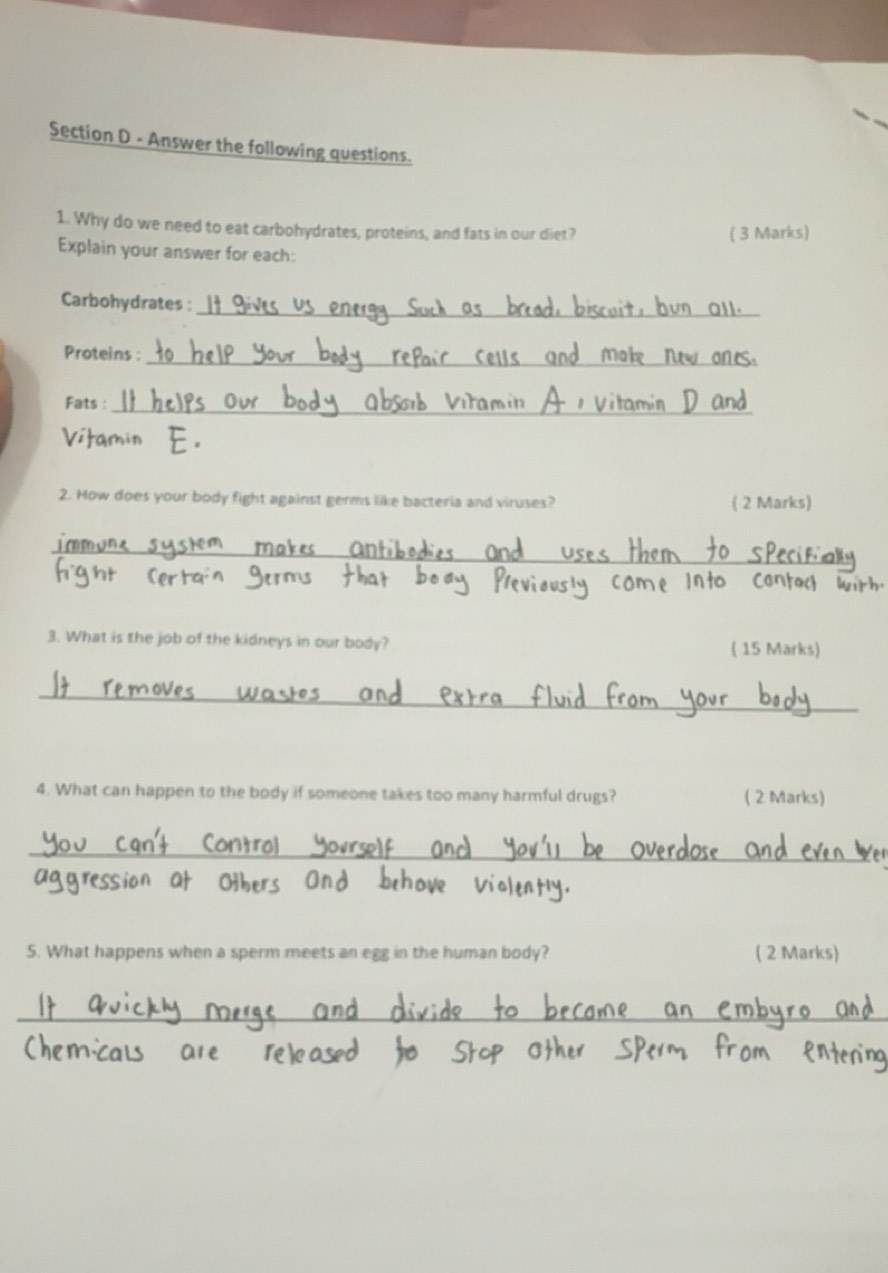 Section D - Answer the following questions.
1. Why do we need to eat carbohydrates, proteins, and fats in our diet? ( 3 Marks)
Explain your answer for each:
Carbohydrates : It gives us energy such as bread, biscuit, bun all.
Proteins : to help your body repair cells and make new ones.
Fats : It helps our body absorb vitamin A, vitamin D and
Vitamin E.
2. How does your body fight against germs like bacteria and viruses? ( 2 Marks)
immune system makes antibodies and uses them to specifially
fight certain germs that body Previously come into contact with.
3. What is the job of the kidneys in our body? ( 15 Marks)
It removes wastes and extra fluid from your body
4. What can happen to the body if someone takes too many harmful drugs? ( 2 Marks)
you can't control yourself and you'll be overdose and even
aggression at others and behave violently.
5. What happens when a sperm meets an egg in the human body? ( 2 Marks)
It quickly merge and divide to become an embyro and
Chemicals are released to stop other sperm from entering